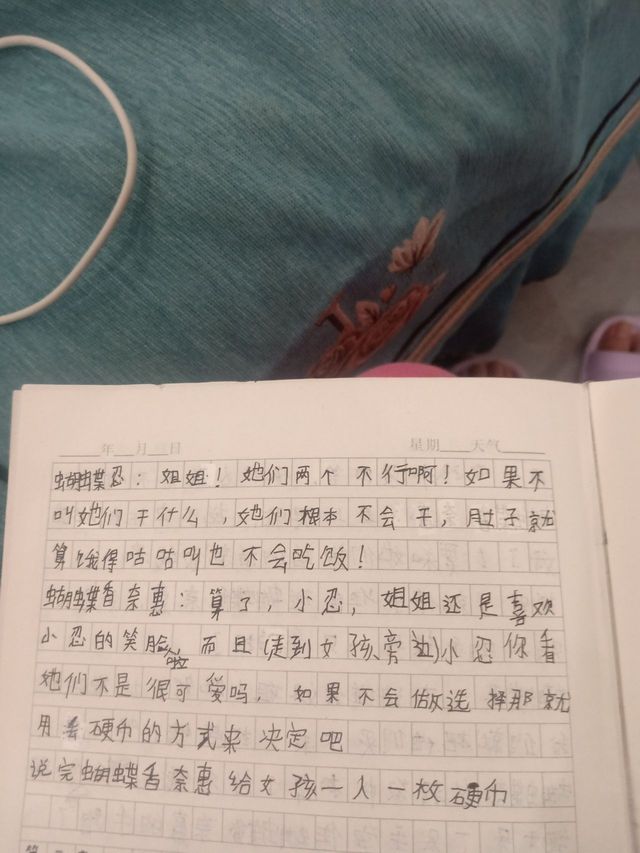 年 月 日 星期 天气
蝴蝶忍：姐姐！她们两个不行啊！如果不
叫她们干什么，她们根本不会干，肚子就
算饿得咕咕叫也不会吃饭！
蝴蝶香奈惠：算了，小忍，姐姐还是喜欢
小忍的笑脸啦，而且(走到女孩旁边)小忍你看
她们不是很可爱吗，如果不会做选择那就
用丢硬币的方式来决定吧
说完蝴蝶香奈惠给女孩一人一枚硬币